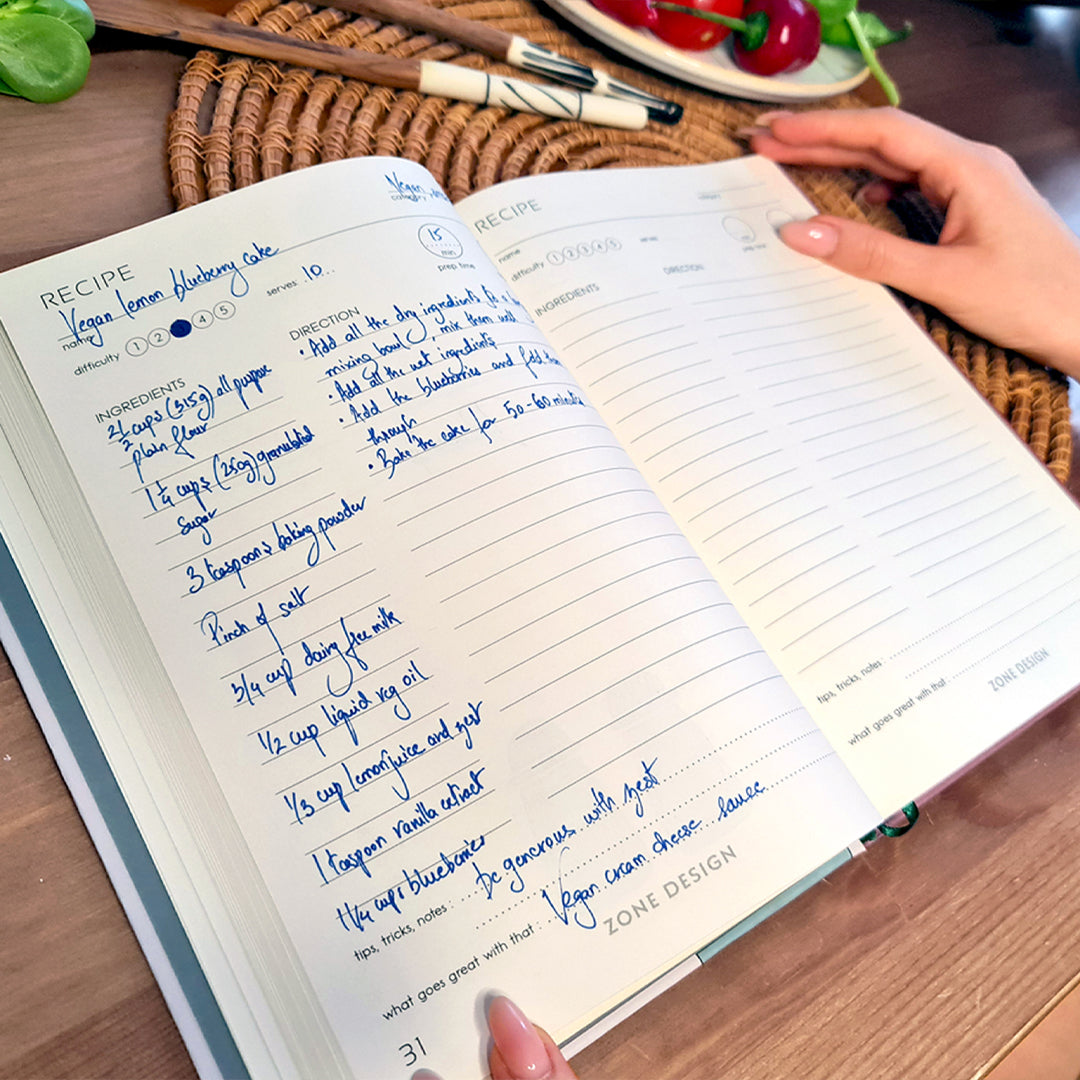 Vegan
category
RECIPE
Vegan lemon blueberry cake
name
serves: 10
15
min
prep. time
difficulty 1 2 4 5
INGREDIENTS
2 1/2 cups (315g) all purpose
plain flour
1 1/4 cups (250g) granulated
sugar
3 teaspoons baking powder
Pinch of salt
3/4 cup dairy free milk
1/2 cup liquid veg oil
1/3 cup lemon juice and zest
1 teaspoon vanilla extract
1 1/4 cups blueberries
DIRECTION
• Add all the dry ingredients
mixing bowl, mix them well
• Add all the wet ingredients
• Add the blueberries and fold
through
• Bake the cake for 50-60 minutes
tips, tricks, notes : be generous with zest
what goes great with that : Vegan cream cheese sauce
ZONE DESIGN
31
RECIPE
category
name
difficulty 1 2 3 4 5
serves
prep. time
INGREDIENTS
DIRECTION
tips, tricks, notes
what goes great with that
ZONE DESIGN